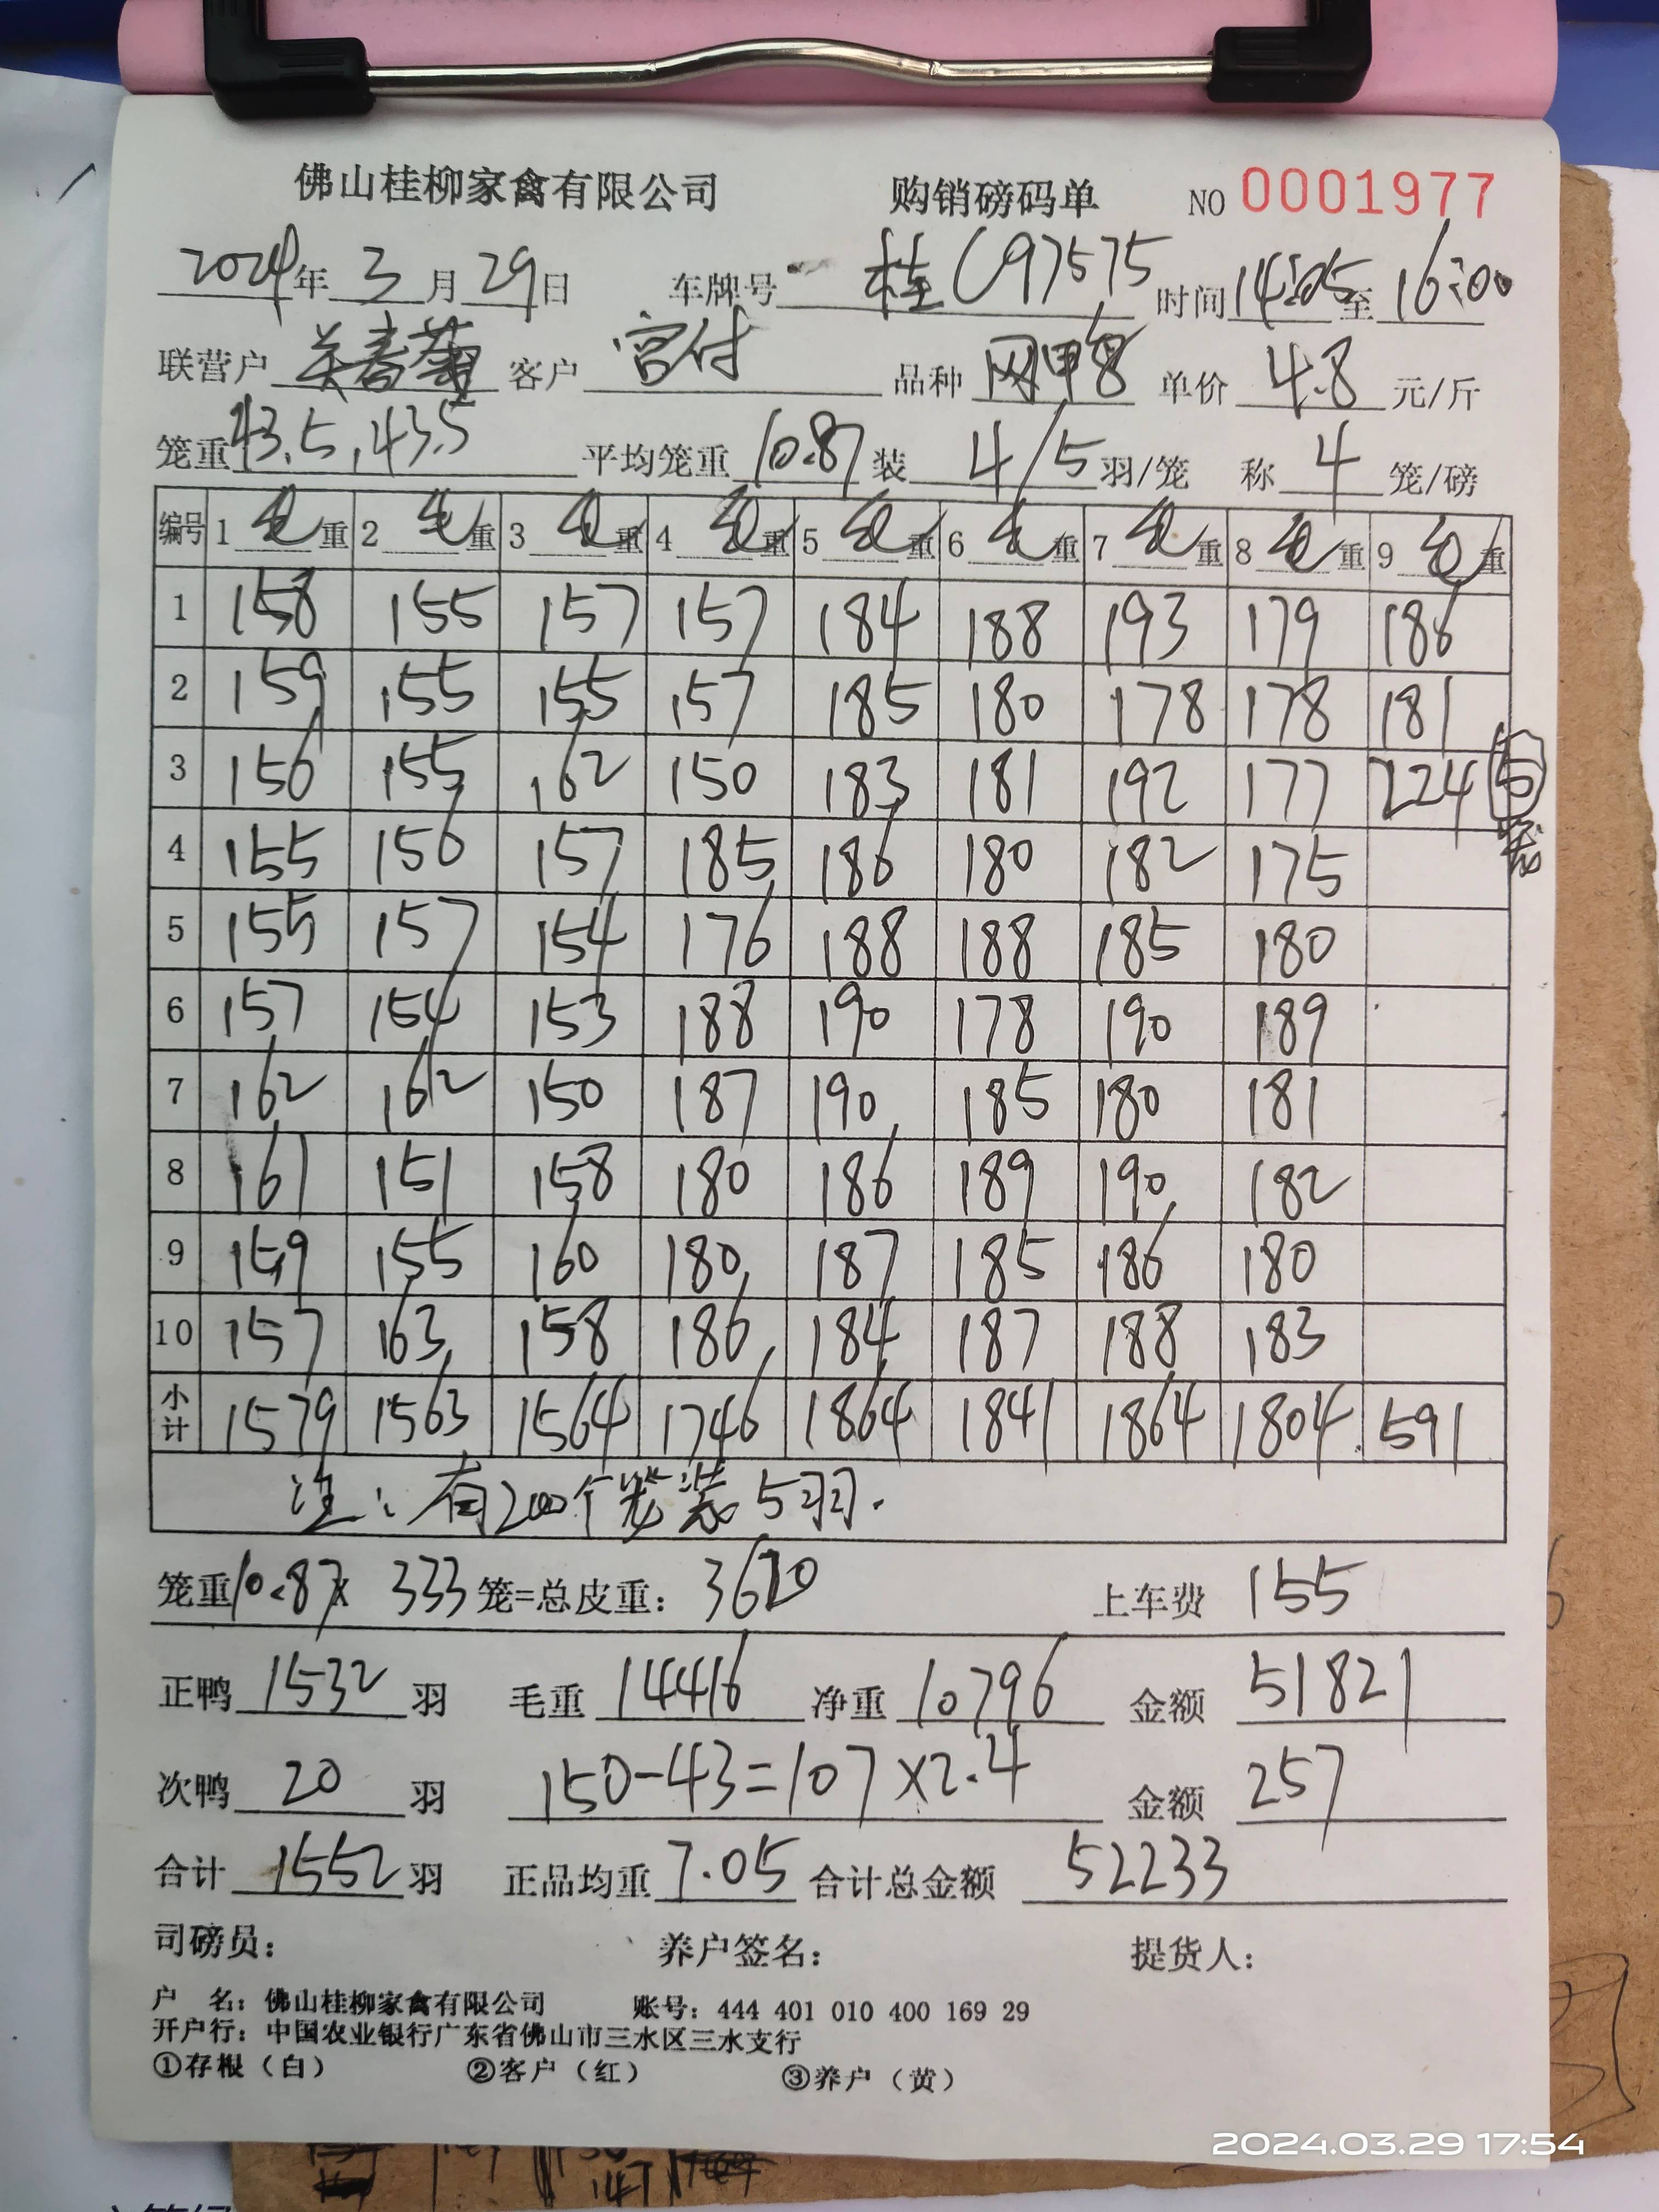 佛山桂柳家禽有限公司 购销磅码单 NO 0001977
2024年3月29日 车牌号 桂C97575 时间14:05至16:00
联营户 客户 宫付 品种 单价 4.8 元/斤
笼重43.5,43.5 平均笼重10.87 装 4/5 羽/笼 称 4 笼/磅
编号 1 毛重 2 毛重 3 毛重 4 毛重 5 毛重 6 毛重 7 毛重 8 毛重 9 毛重
1 158 155 157 157 184 188 193 179 186
2 159 155 155 157 185 180 178 178 181
3 156 155 162 150 183 181 192 177 224 5笼
4 155 156 157 185 186 180 182 175
5 155 157 154 176 188 188 185 180
6 157 154 153 188 190 178 190 189
7 162 162 150 187 190 185 180 181
8 161 151 158 180 186 189 190 182
9 159 155 160 180 187 185 186 180
10 157 163 158 186 184 187 188 183
小计 1579 1563 1564 1746 1864 1841 1864 1804 591
注:有200个笼装5羽.
笼重10.87x 333笼=总皮重:3620 上车费 155
正鸭 1532 羽 毛重 14416 净重 10796 金额 51821
次鸭 20 羽 150-43=107×2.4 金额 257
合计 1552 羽 正品均重 7.05 合计总金额 52233
司磅员: 养户签名: 提货人:
户 名:佛山桂柳家禽有限公司 账号:444 401 010 400 169 29
开户行:中国农业银行广东省佛山市三水区三水支行
①存根(白) ②客户(红) ③养户(黄)
2024.03.29 17:54